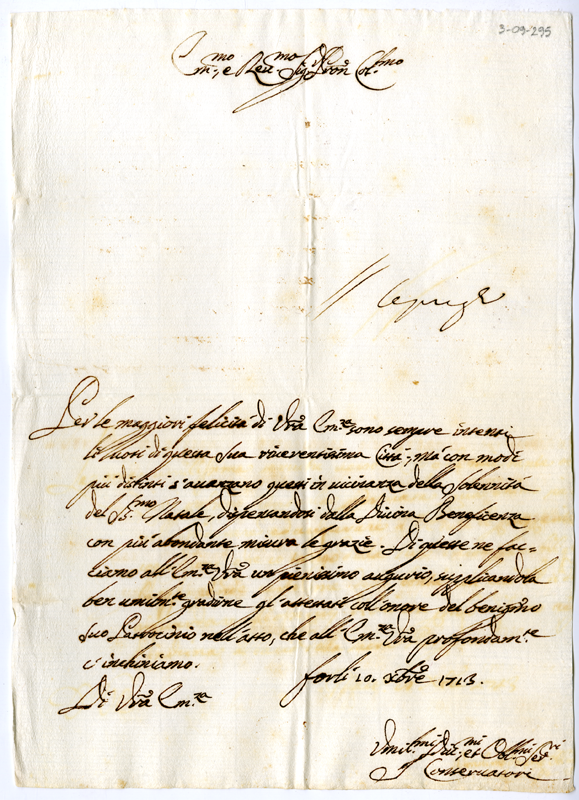 3-09-295
Em.mo e Reu.mo Sig.r Pron Col.mo
Per le maggiori felicità di Vrã Em.za sono sempre intenti
li uoti di questa sua riuerentissima Città; mà con modi
più distinti s'auanzano questi in uicinanza della Solennità
del S.mo Natale, dispensandosi dalla Diuina Beneficenza
con più abondante misura le grazie. Di queste ne fac=
ciamo all'Em.za Vrã un pienissimo augurio, supplicandola
per umilm.te gradirne gl'attestati coll'onore del benigno
suo Patrocinio nell'atto, che all'Em.za Vrã profondam.te
c'inchiniamo.
Forlì 10. Xbre 1713.
Di Vrã Em.za
Umil.mi Diu.mi, et Obl.mi Ser.ri
Conseruatori